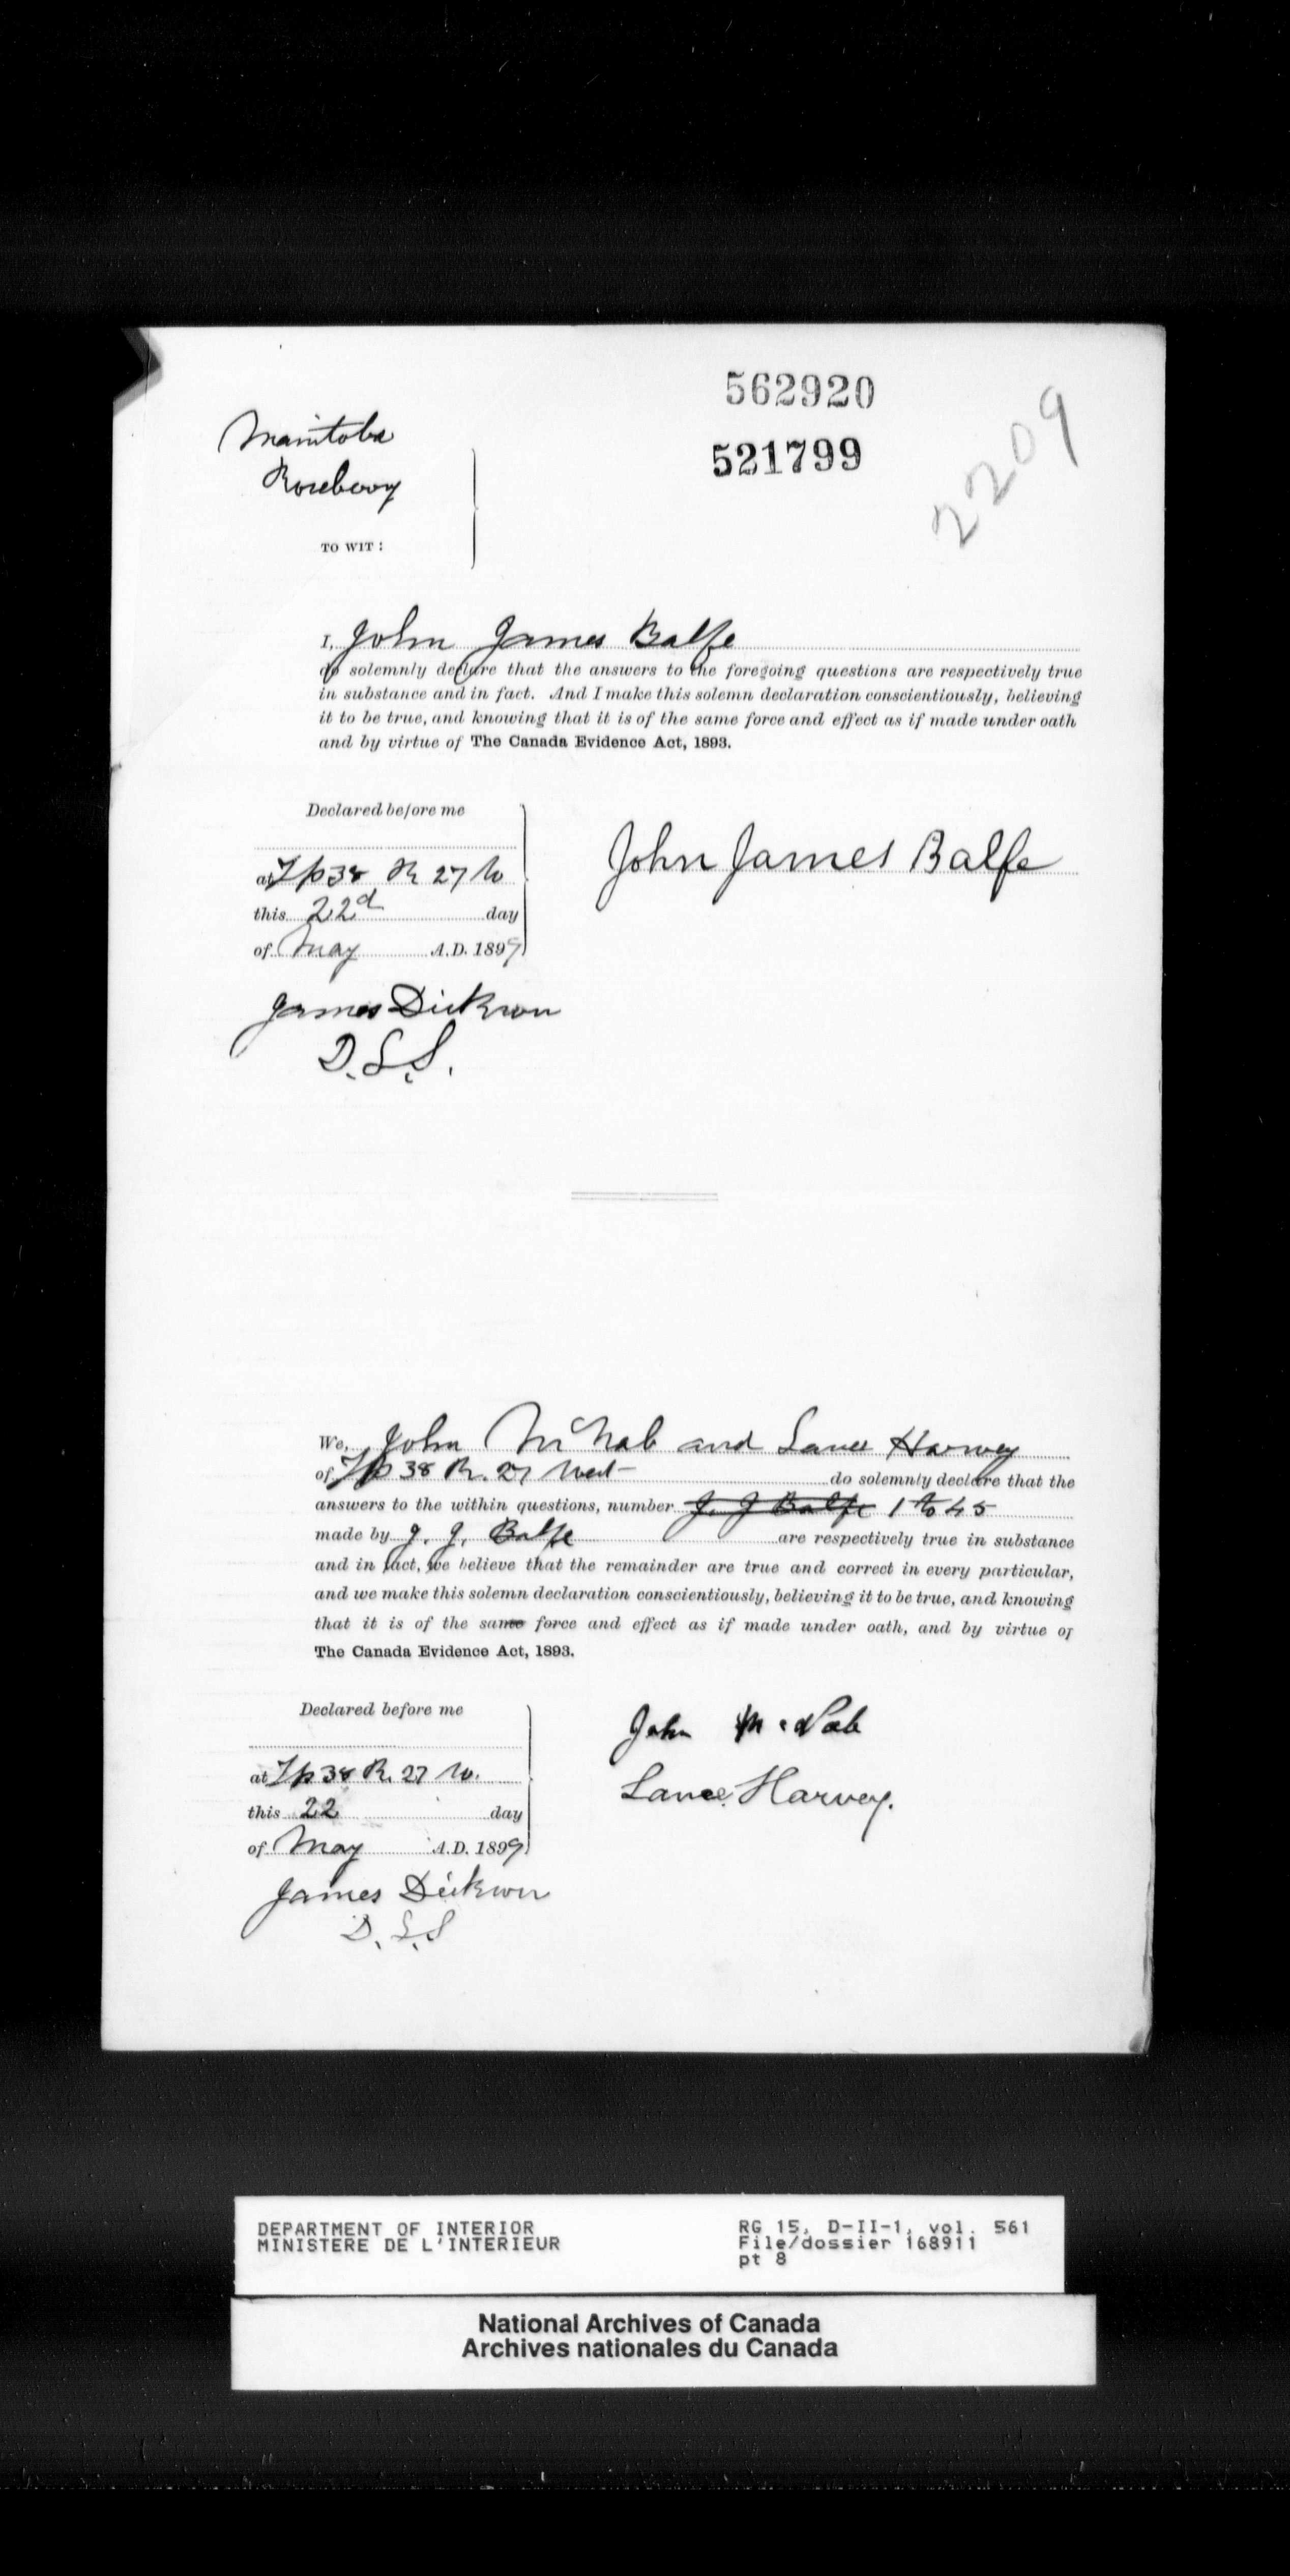 562920
521799
2209
Manitoba
Rosebery
TO WIT:
I, John James Balfe
do solemnly declare that the answers to the foregoing questions are respectively true
in substance and in fact. And I make this solemn declaration conscientiously, believing
it to be true, and knowing that it is of the same force and effect as if made under oath
and by virtue of The Canada Evidence Act, 1893.
Declared before me
at Tp 38 R 27 W
this 22d day
of May A.D. 1899
John James Balfe
James Dickson
D.L.S.
We, John McNab and Lance Harvey
of Tp 38 R. 27 West do solemnly declare that the
answers to the within questions, number J. J Balfe 1 to 45
made by J. J. Balfe are respectively true in substance
and in fact, we believe that the remainder are true and correct in every particular,
and we make this solemn declaration conscientiously, believing it to be true, and knowing
that it is of the same force and effect as if made under oath, and by virtue of
The Canada Evidence Act, 1893.
Declared before me
at Tp 38 R. 27 W.
this 22 day
of May A.D. 1899
John McNab
Lance Harvey.
James Dickson
D.L.S
DEPARTMENT OF INTERIOR
MINISTERE DE L'INTERIEUR
RG 15, D-II-1, vol. 561
File/dossier 168911
pt 8
National Archives of Canada
Archives nationales du Canada